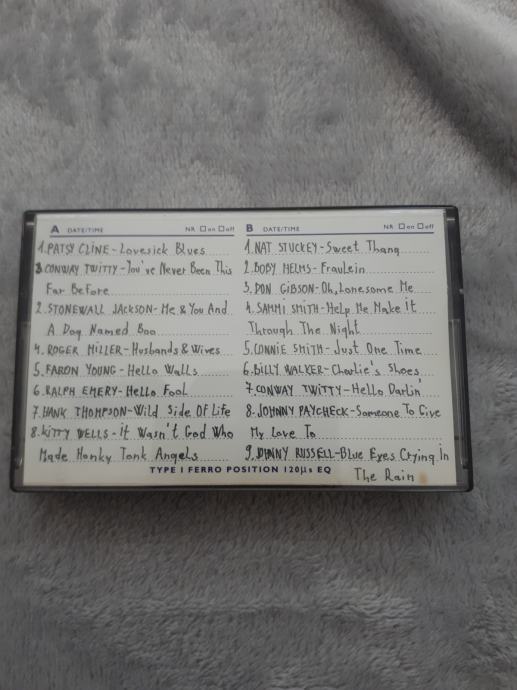 A DATE/TIME NR on off
1.PATSY CLINE-Lovesick Blues
3.CONWAY TWITTY-You've Never Been This
Far Before
2.STONEWALL JACKSON-Me & You And
A Dog Named Boo
4.ROGER MILLER-Husbands & Wives
5.FARON YOUNG-Hello Walls
6.RALPH EMERY-Hello Fool
7.HANK THOMPSON-Wild Side Of Life
8.KITTY WELLS-it Wasn't God Who
Made Honky Tonk Angels
B DATE/TIME NR on off
1.NAT STUCKEY-Sweet Thang
2.BOBY HELMS-Fraulein
3.DON GIBSON-Oh, Lonesome Me
4.SAMMI SMITH-Help Me Make it
Through The Night
5.CONNIE SMITH-Just One Time
6.BILLY WALKER-Charlie's Shoes
7.CONWAY TWITTY-Hello Darlin'
8.JOHNNY PAYCHECK-Someone To Give
My Love To
9.JOHNNY RUSSELL-Blue Eyes Crying In
The Rain
TYPE I FERRO POSITION 120µs EQ